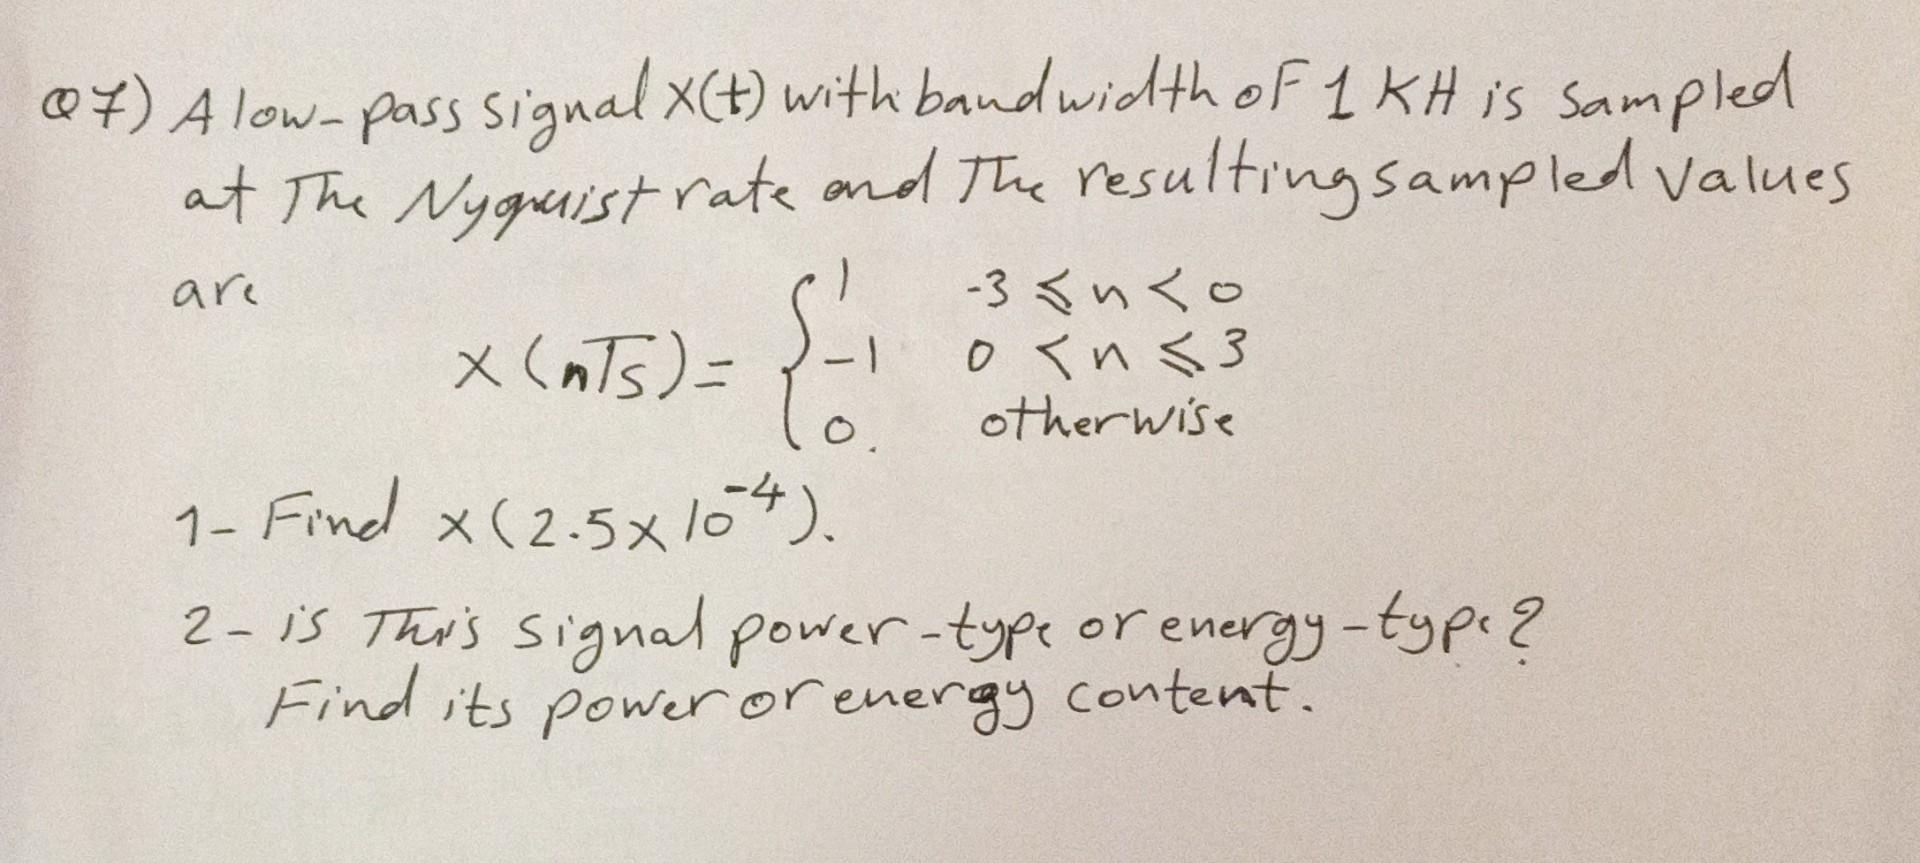 Q7) A low-pass signal X(t) with bandwidth of 1 KH is sampled
at The Nyquist rate and The resulting sampled values
are
1 -3 ⩽ n < 0
x(nTs) = { -1 0 < n ⩽ 3
0. otherwise
1- Find x(2.5x10⁻⁴).
2- is This signal power-type or energy-type?
Find its power or energy content.